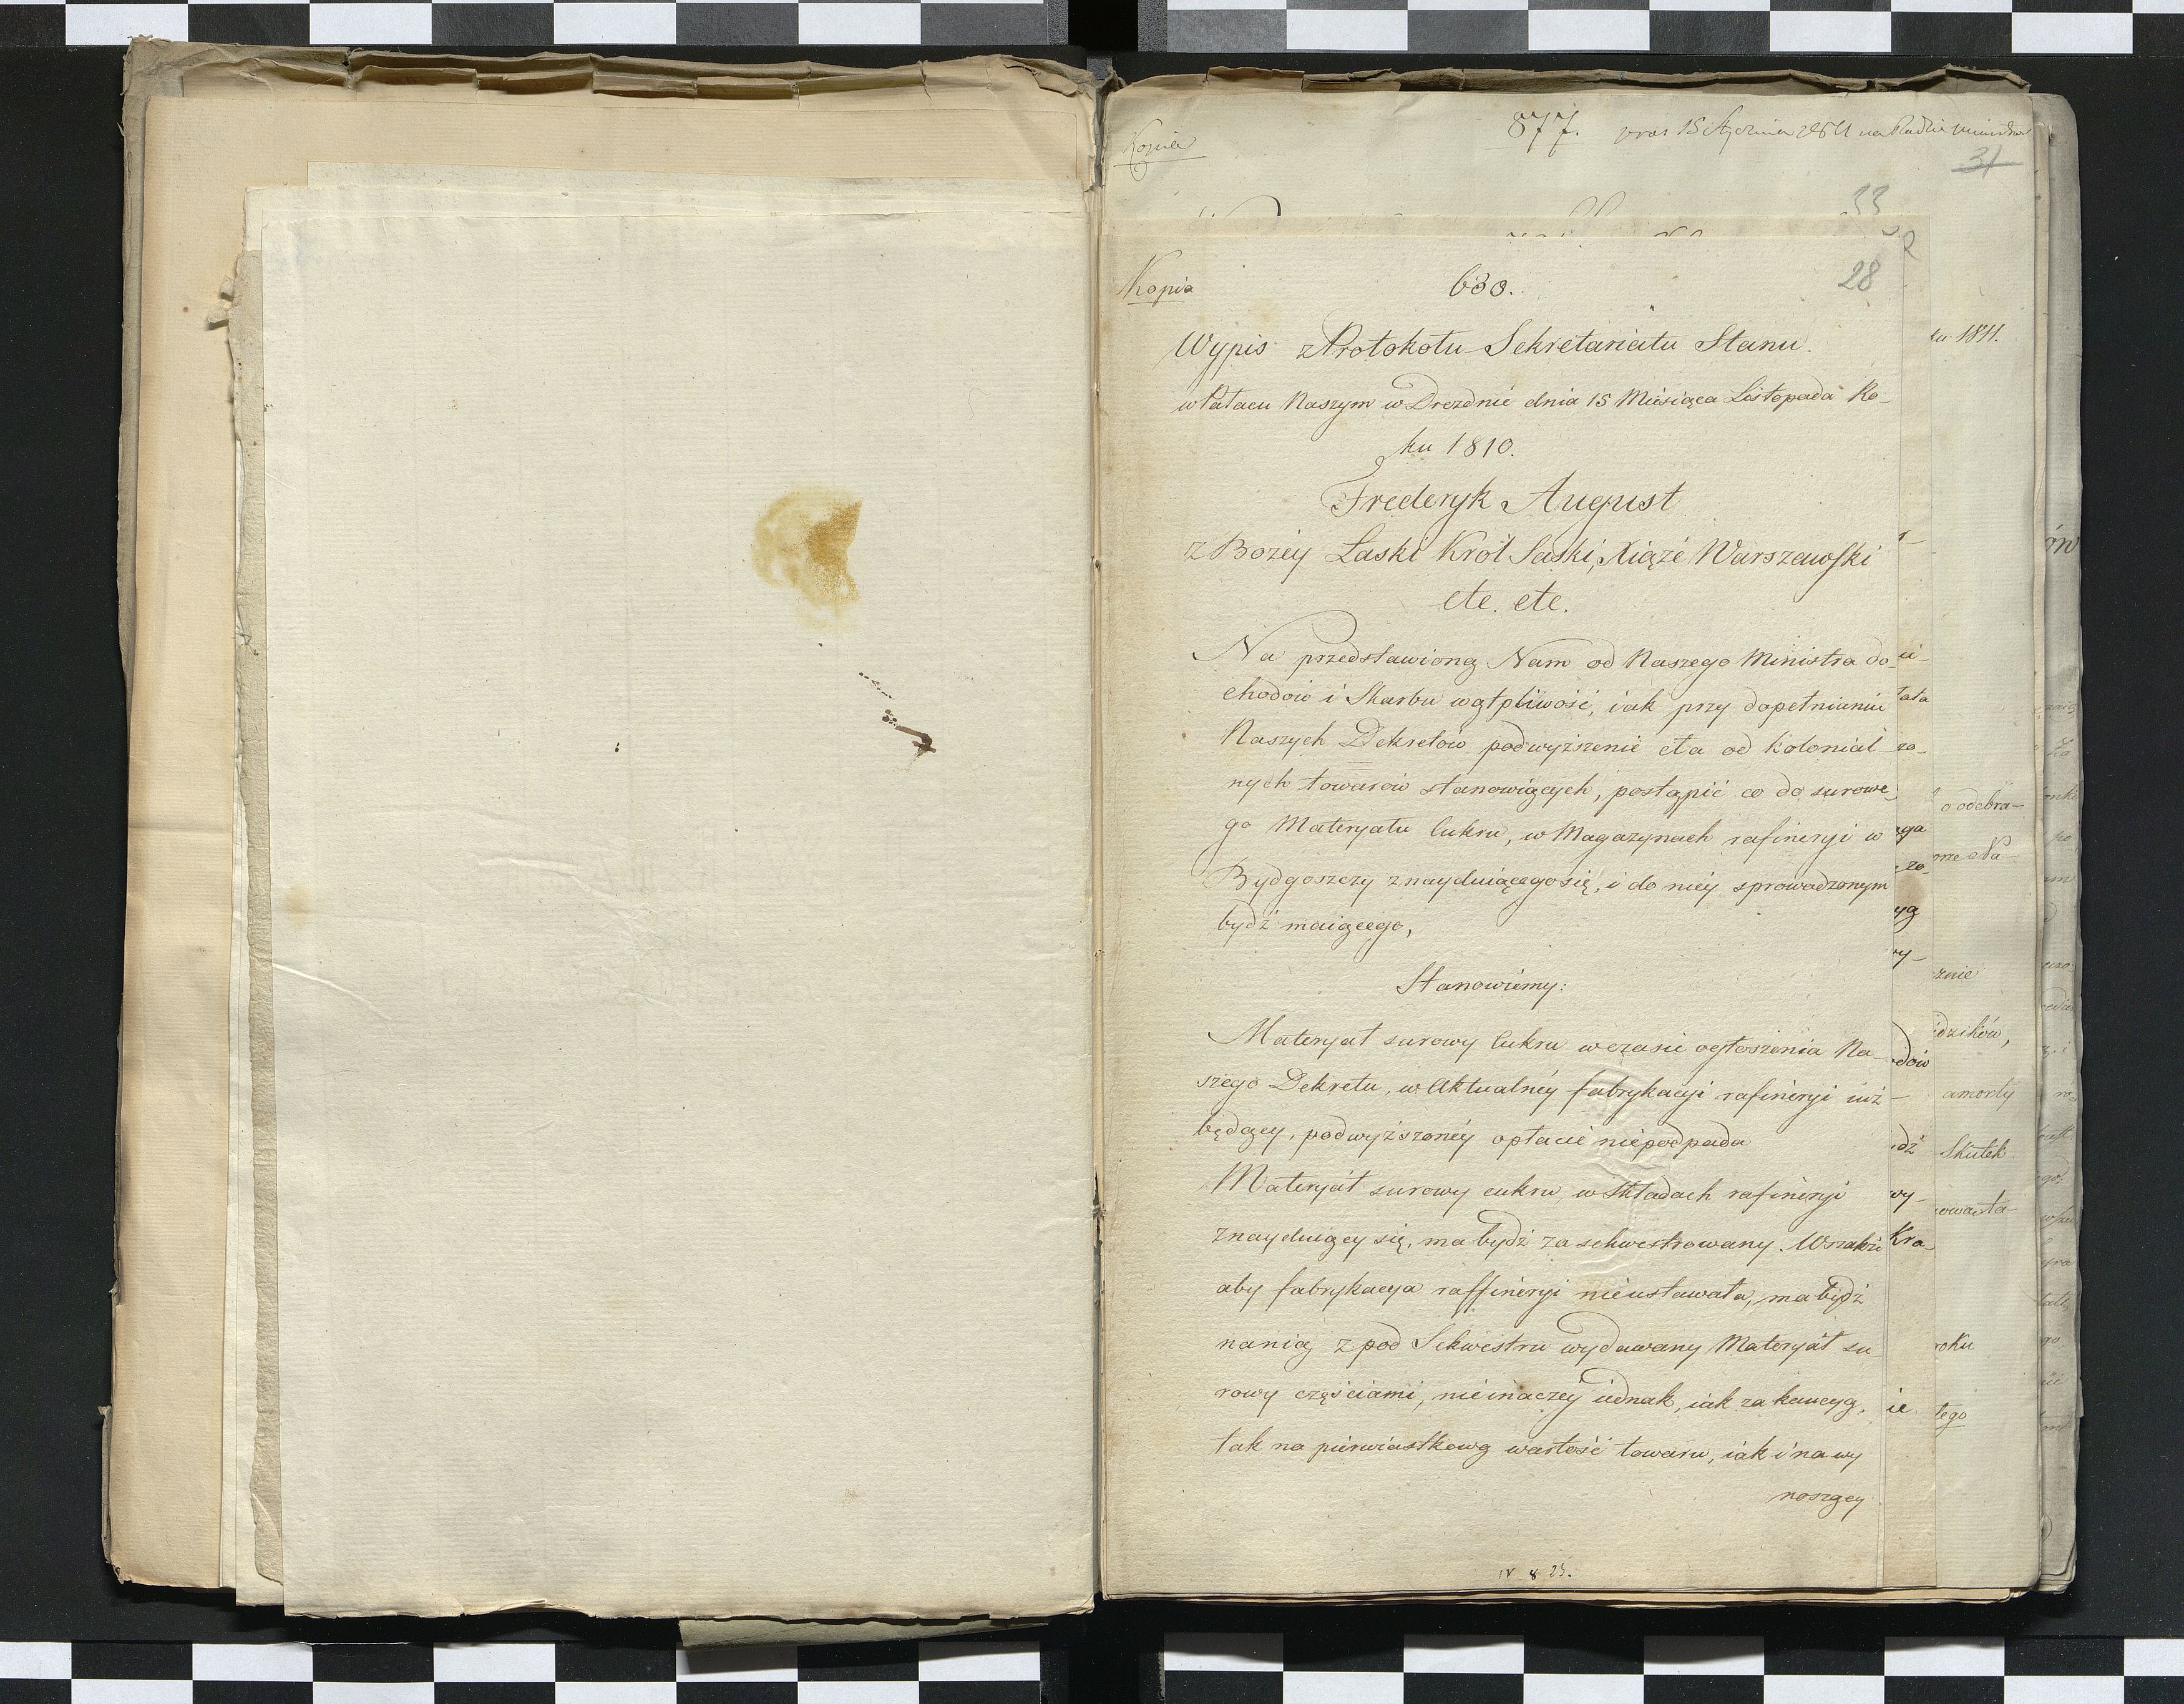 Kopia
877.
31
33
Kopia
630.
28
Wypis z Protokołu Sekretariatu Stanu.
w Pałacu Naszym w Dreznie dnia 15 Miesiąca Listopada Ro-
ku 1810.
Frederyk August
z Bożéy Łaski Król Saski, Xiąże Warszawski
etc. etc.
Na przedstawioną Nam od Naszego Ministra do-
chodów i Skarbu wątpliwość, iak przy dopełnianiu
Naszych Dekretów podwyższenie cła od kolonial-
nych towarów stanowiących, postąpić co do surowe-
go Materyału Cukru, w Magazynach rafineryi w
Bydgoszczy znayduiącego się, i do niéy sprowadzonym
bydź maiącego,
Stanowiemy:
Materyał surowy Cukru w czasie ogłoszenia Na-
szego Dekretu, w Aktualnéy fabrykacyi rafineryi iuż
będący, podwyższonéy opłacie niepodpada
Materyał surowy cukru, w Składach rafineryi
znayduiący się, ma bydź zasekwestrowany. Wszakże
aby fabrykacya raffineryi nieustawała, ma bydź
nanią z pod Sekwestru wydawany Materyał su-
rowy częściami, nieinaczéy iednak, iak za kaucyą,
tak na pierwiastkową wartość towaru, iak i na wy
noszący
IV 8 23.
ku 1811.
o odebra-
znie
dzików,
amorty
Skutek
Kra-
roku
ie
tego